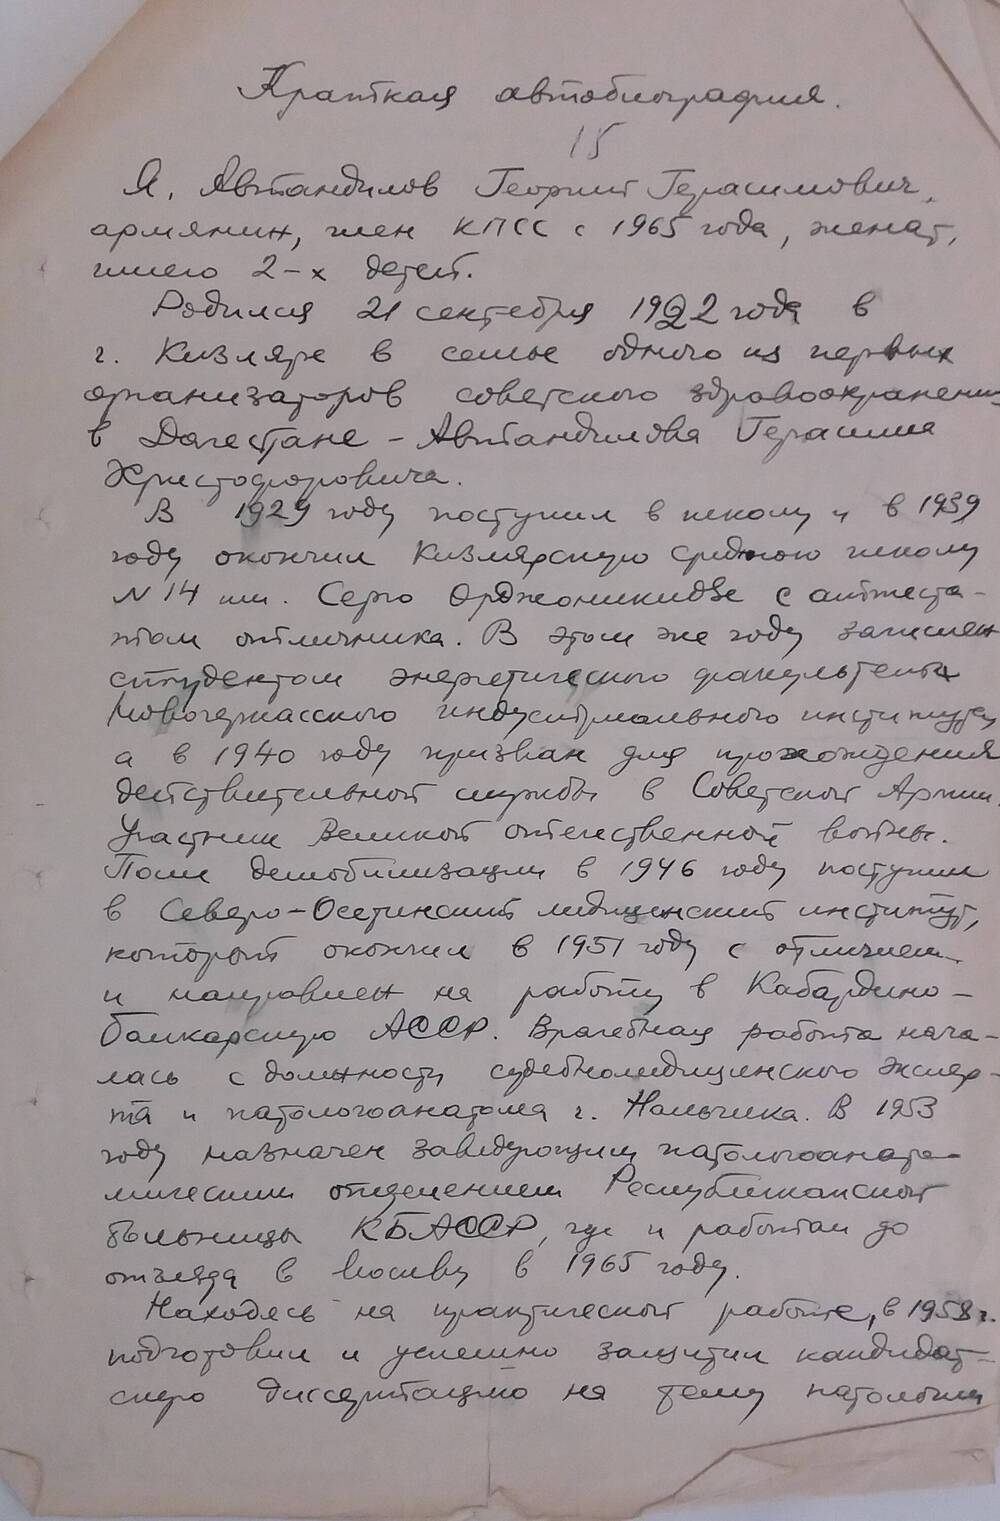 Краткая автобиография.
15
Я, Автандилов Георгий Герасимович,
армянин, член КПСС с 1965 года, женат,
имею 2-х детей.
Родился 21 сентября 1922 года в
г. Кизляре в семье одного из первых
организаторов советского здравоохранения
в Дагестане - Автандилова Герасима
Христофоровича.
В 1929 году поступил в школу и в 1939
году окончил Кизлярскую среднюю школу
N 14 им. Серго Орджоникидзе с аттеста-
том отличника. В этом же году зачислен
студентом энергетического факультета
Новочеркасского индустриального института,
а в 1940 году призван для прохождения
действительной службы в Советской Армии.
Участник Великой отечественной войны.
После демобилизации в 1946 году поступил
в Северо-Осетинский медицинский институт,
который окончил в 1951 году с отличием
и направлен на работу в Кабардино-
Балкарскую АССР. Врачебная работа нача-
лась с должности судебномедицинского экспер-
та и патологоанатома г. Нальчика. В 1953
году назначен заведующим патологоанато-
мическим отделением Республиканской
больницы КБАССР, где и работал до
отъезда в Москву в 1965 году.
Находясь на практической работе, в 1958 г.
подготовил и успешно защитил кандидат-
скую диссертацию на тему патологии